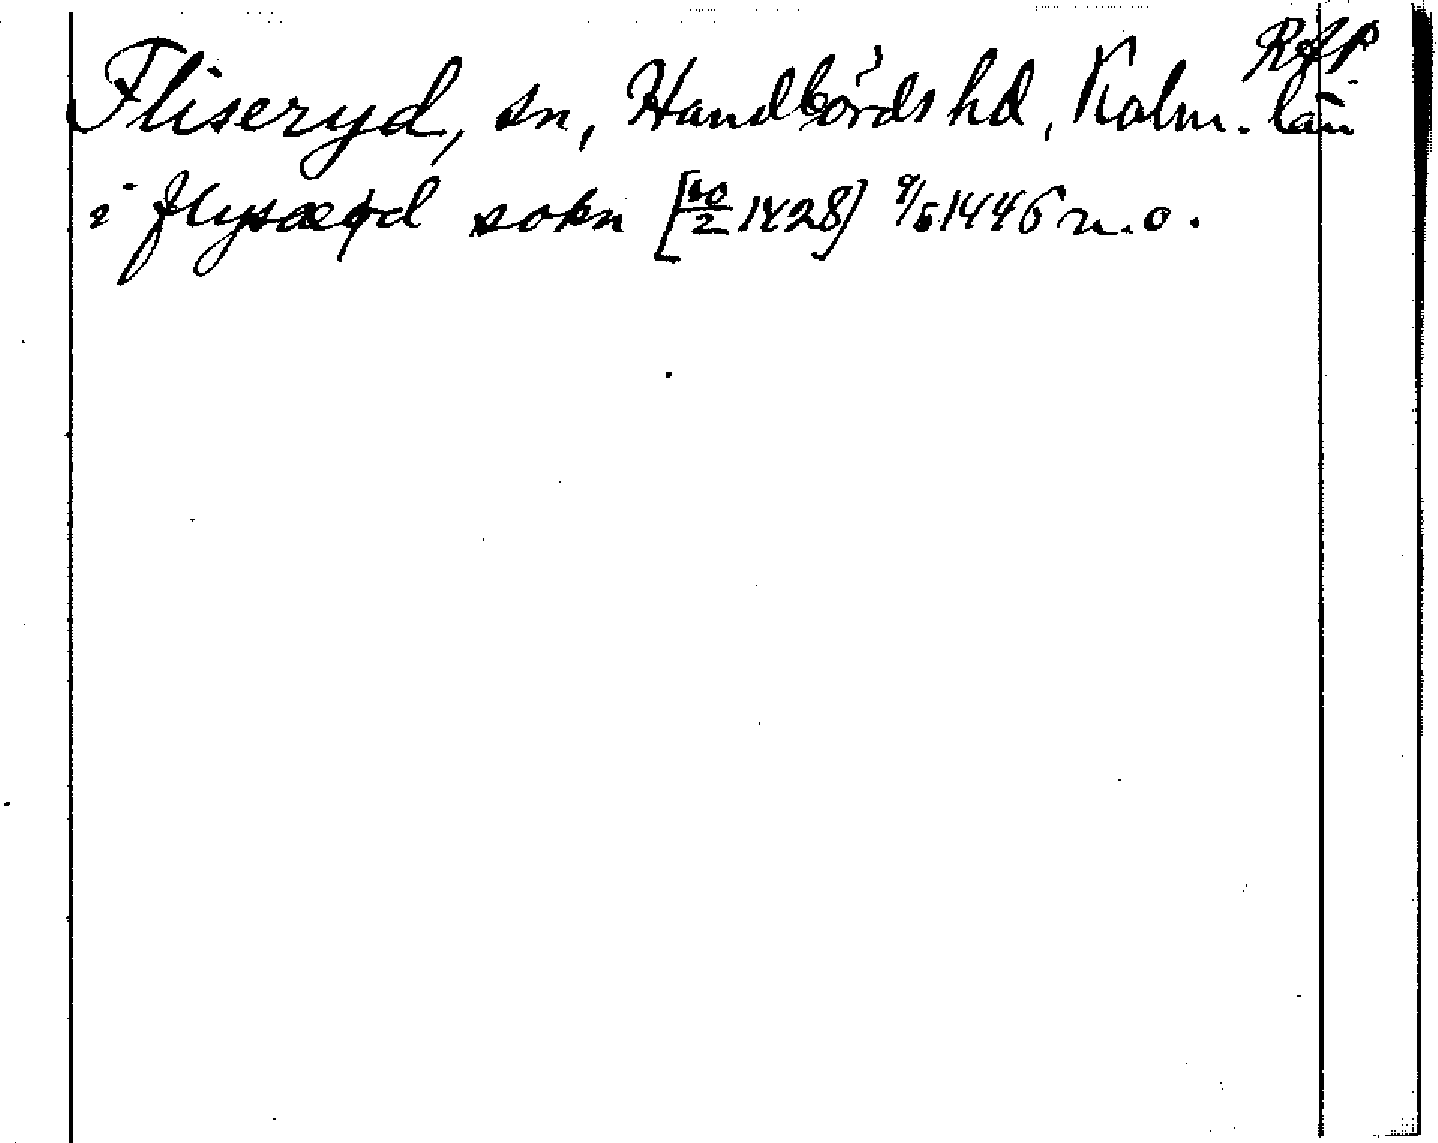 RefP
Fliseryd, sn, Handbörds hd, Kalm. län
i flysæryd sokn [10/2 1428] 9/5 1446 n.o.